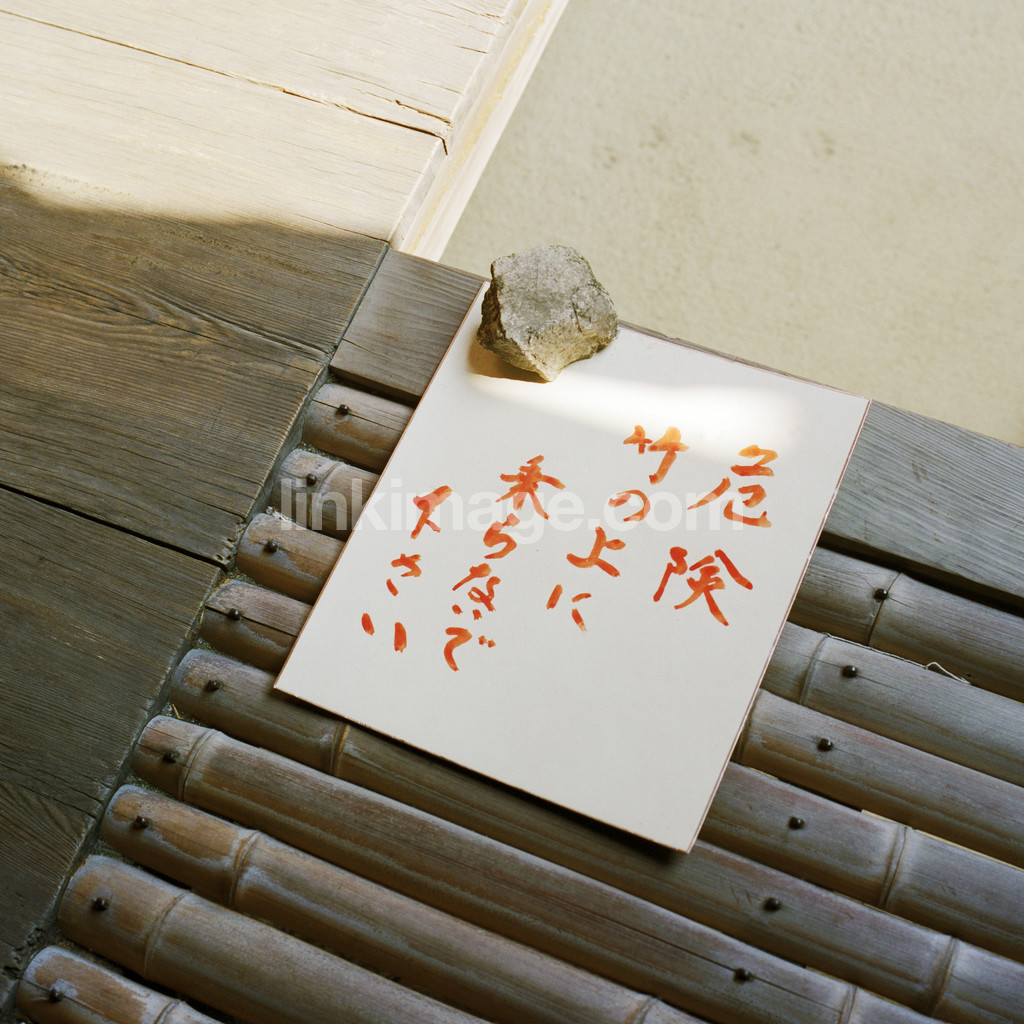 危険
竹の上に
乗らないで
下さい
linkimage.com